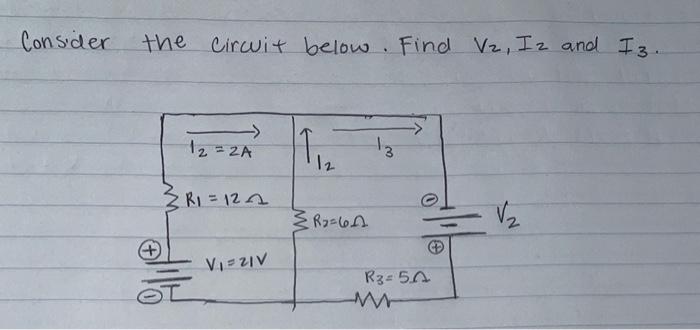 Consider the circuit below. Find V2, I2 and I3.
I2 = 2A
I2
I3
R1 = 12 Ω
R2=6Ω
V2
V1=21V
R3=5Ω
+
-
-
+